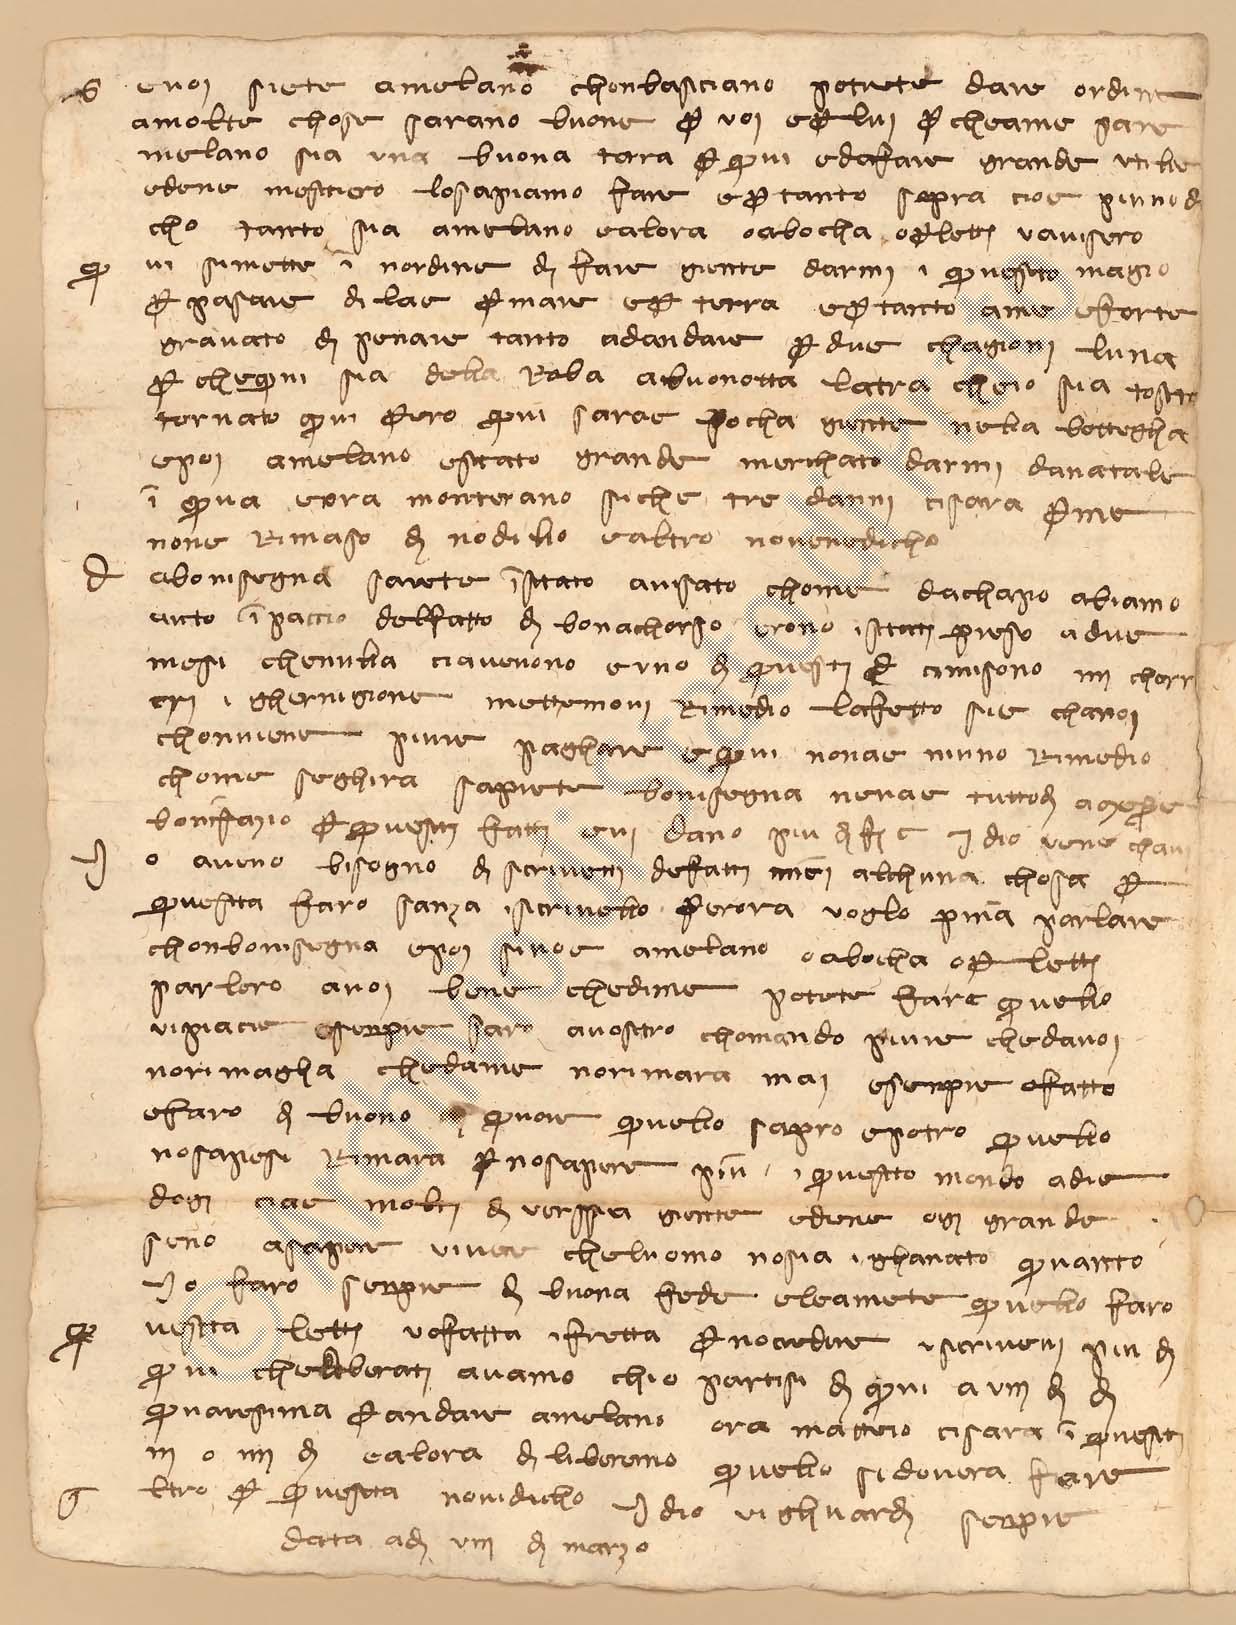 S evoi siete amelano chonbasciano potrete dare ordine
amolte chose sarano buone p voi e p lui p cheame pare
melano sia una buona tara p qui edafare grande utile
edene mestiero losapiamo fare e p tanto sopra cioe piu nodi
cho tanto sia amelano ealora oabocha o p lett vaviseró
Q ui simette i nordine di fare giente darmi i questo magio
p pasare dilae p mare e p terra e p tanto ame eforte
gravato di penare tanto adandare p due chagioni luna
p chequi sia della Roba abuonotta latra cheio sia tosto
tornato qui pero qui sarae pocha giente nella bottegha
epoi amelano estato grande merchato darmi danatale
i qua eora monterano siche tre danni cisara p me
none Rimaso di nodillo ealtro novenedicho
D abonisegna sarete istato avisato chome dachapo abiamo
auto ipaccio delfatto di bonachorso erono istati preso a due
mesi chenulla ciavenono euno di questi d cimisono iiii chorr
eri i ghernigione mettemovi Rimedio lafetto sie chanoi
chonviene pure paghare equi nonae niuno Rimedio
chome seghira sapiete bonisegna nerae tuttodi
bonifazio p questi fatti evi dano piu di f C Idio vene chavi
I o aveno bisogno di scriverti defatti miei alchuna chosa p
questa faro sanza iscrivello perora voglo prima parlare
chonbonisegna epoi sinoe amelano oabocha o p lett
parlero avoi bene chedime potete fare quello
vipiacie esenpre saro avostro chomando pure chedavoi
norimagha chedame norimara mai esenpre ofatto
efaro di buono quore quello sapro epotro quello
nosapesi Rimara p nosapere piu i questo mondo adie
dogi ciae molti di verssia giente edene ogi grande
seno asapere vivere cheluomo nosia ighanato quanto
Io faro senpre di buona fede eleamete quello faro
Q uesta lett vofatta ifretta p nocredere iscriveri piu di
qui chediberati avamo chio partisi di qui a viii di di
quaresima p andare amelano ora matteio cisara i questi
iii o iiii di ealora diliberemo quello sidovera fare
a ltro p questa novidicho Idio vighuardi senpre
data adi viii di marzo